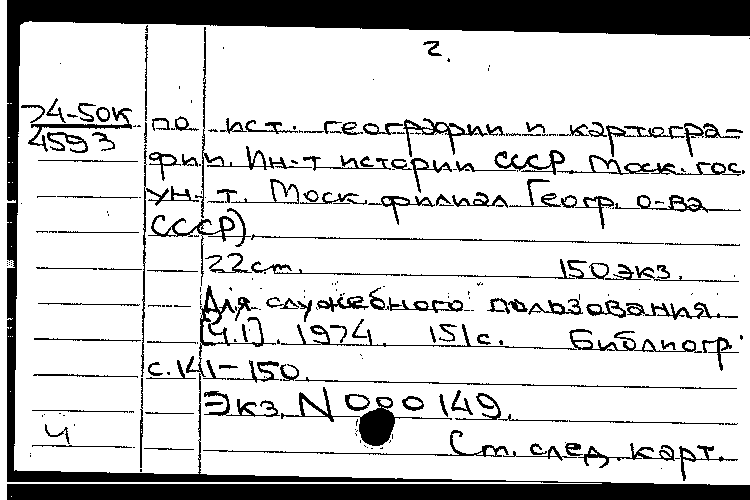 2.
74-50к
4593
по ист. географии и картогра-
фии. Ин-т истории СССР. Моск. гос.
ун-т. Моск. филиал Геогр. о-ва
СССР).
22 см. 150 экз.
Для служебного пользования.
[Ч.1]. 1974. 151 с. Библиогр.
с. 141-150.
Экз. N 000149.
Ч
См. след. карт.